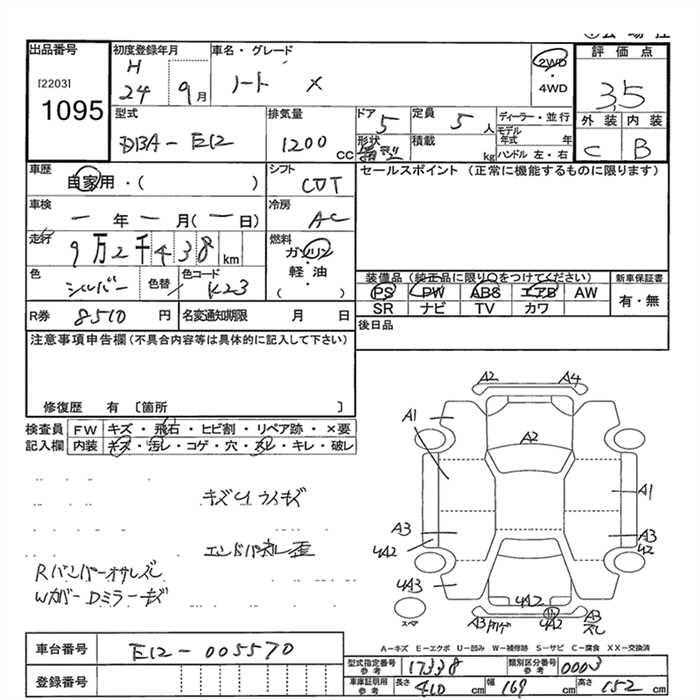 出品番号
[2203]
1095
初度登録年月
H
24 9月
車名・グレード
ノート X
2WD
・
4WD
評価点
3.5
外装 内装
C B
型式
DBA-E12
排気量
1200 CC
ドア
5
形状
定員
5人
積載
kg
ディーラー・並行
モデル年式 年
ハンドル 左・右
車歴
自家用・( )
シフト
CVT
セールスポイント (正常に機能するものに限ります)
車検
ー年ー月(ー日)
冷房
AC
走行
9万2千438km
燃料
ガソリン
軽・油
( )
色
シルバー
色替
色コード
K23
装備品 (純正品に限り○をつけてください)
PS PW ABS エアB AW
SR ナビ TV カワ
新車保証書
有・無
R券 8510円
名変通知期限 月 日
後日品
注意事項申告欄 (不具合内容等は具体的に記入して下さい)
修復歴 有 〔箇所 〕
検査員記入欄
FW キズ・飛石・ヒビ割・リペア跡・×要
内装 キズ・汚レ・コゲ・穴・スレ・キレ・破レ
キズ U ウスキズ
エンドパネル歪
Rバンパーオサレズレ
Wカバー Dミラーキズ
A2 A4
A1
A2
A1
A3
4A2
A3
42
4A3
4A2
4A2
A3
ズレ
スペア
A−キズ E−エクボ U−凹み W−補修跡 S−サビ C−腐食 XX−交換済
車台番号 E12-005570
登録番号
型式指定番号 参考 17338
類別区分番号 参考 0003
車庫証明用 参考 長さ 410 cm 幅 169 cm 高さ 152 cm